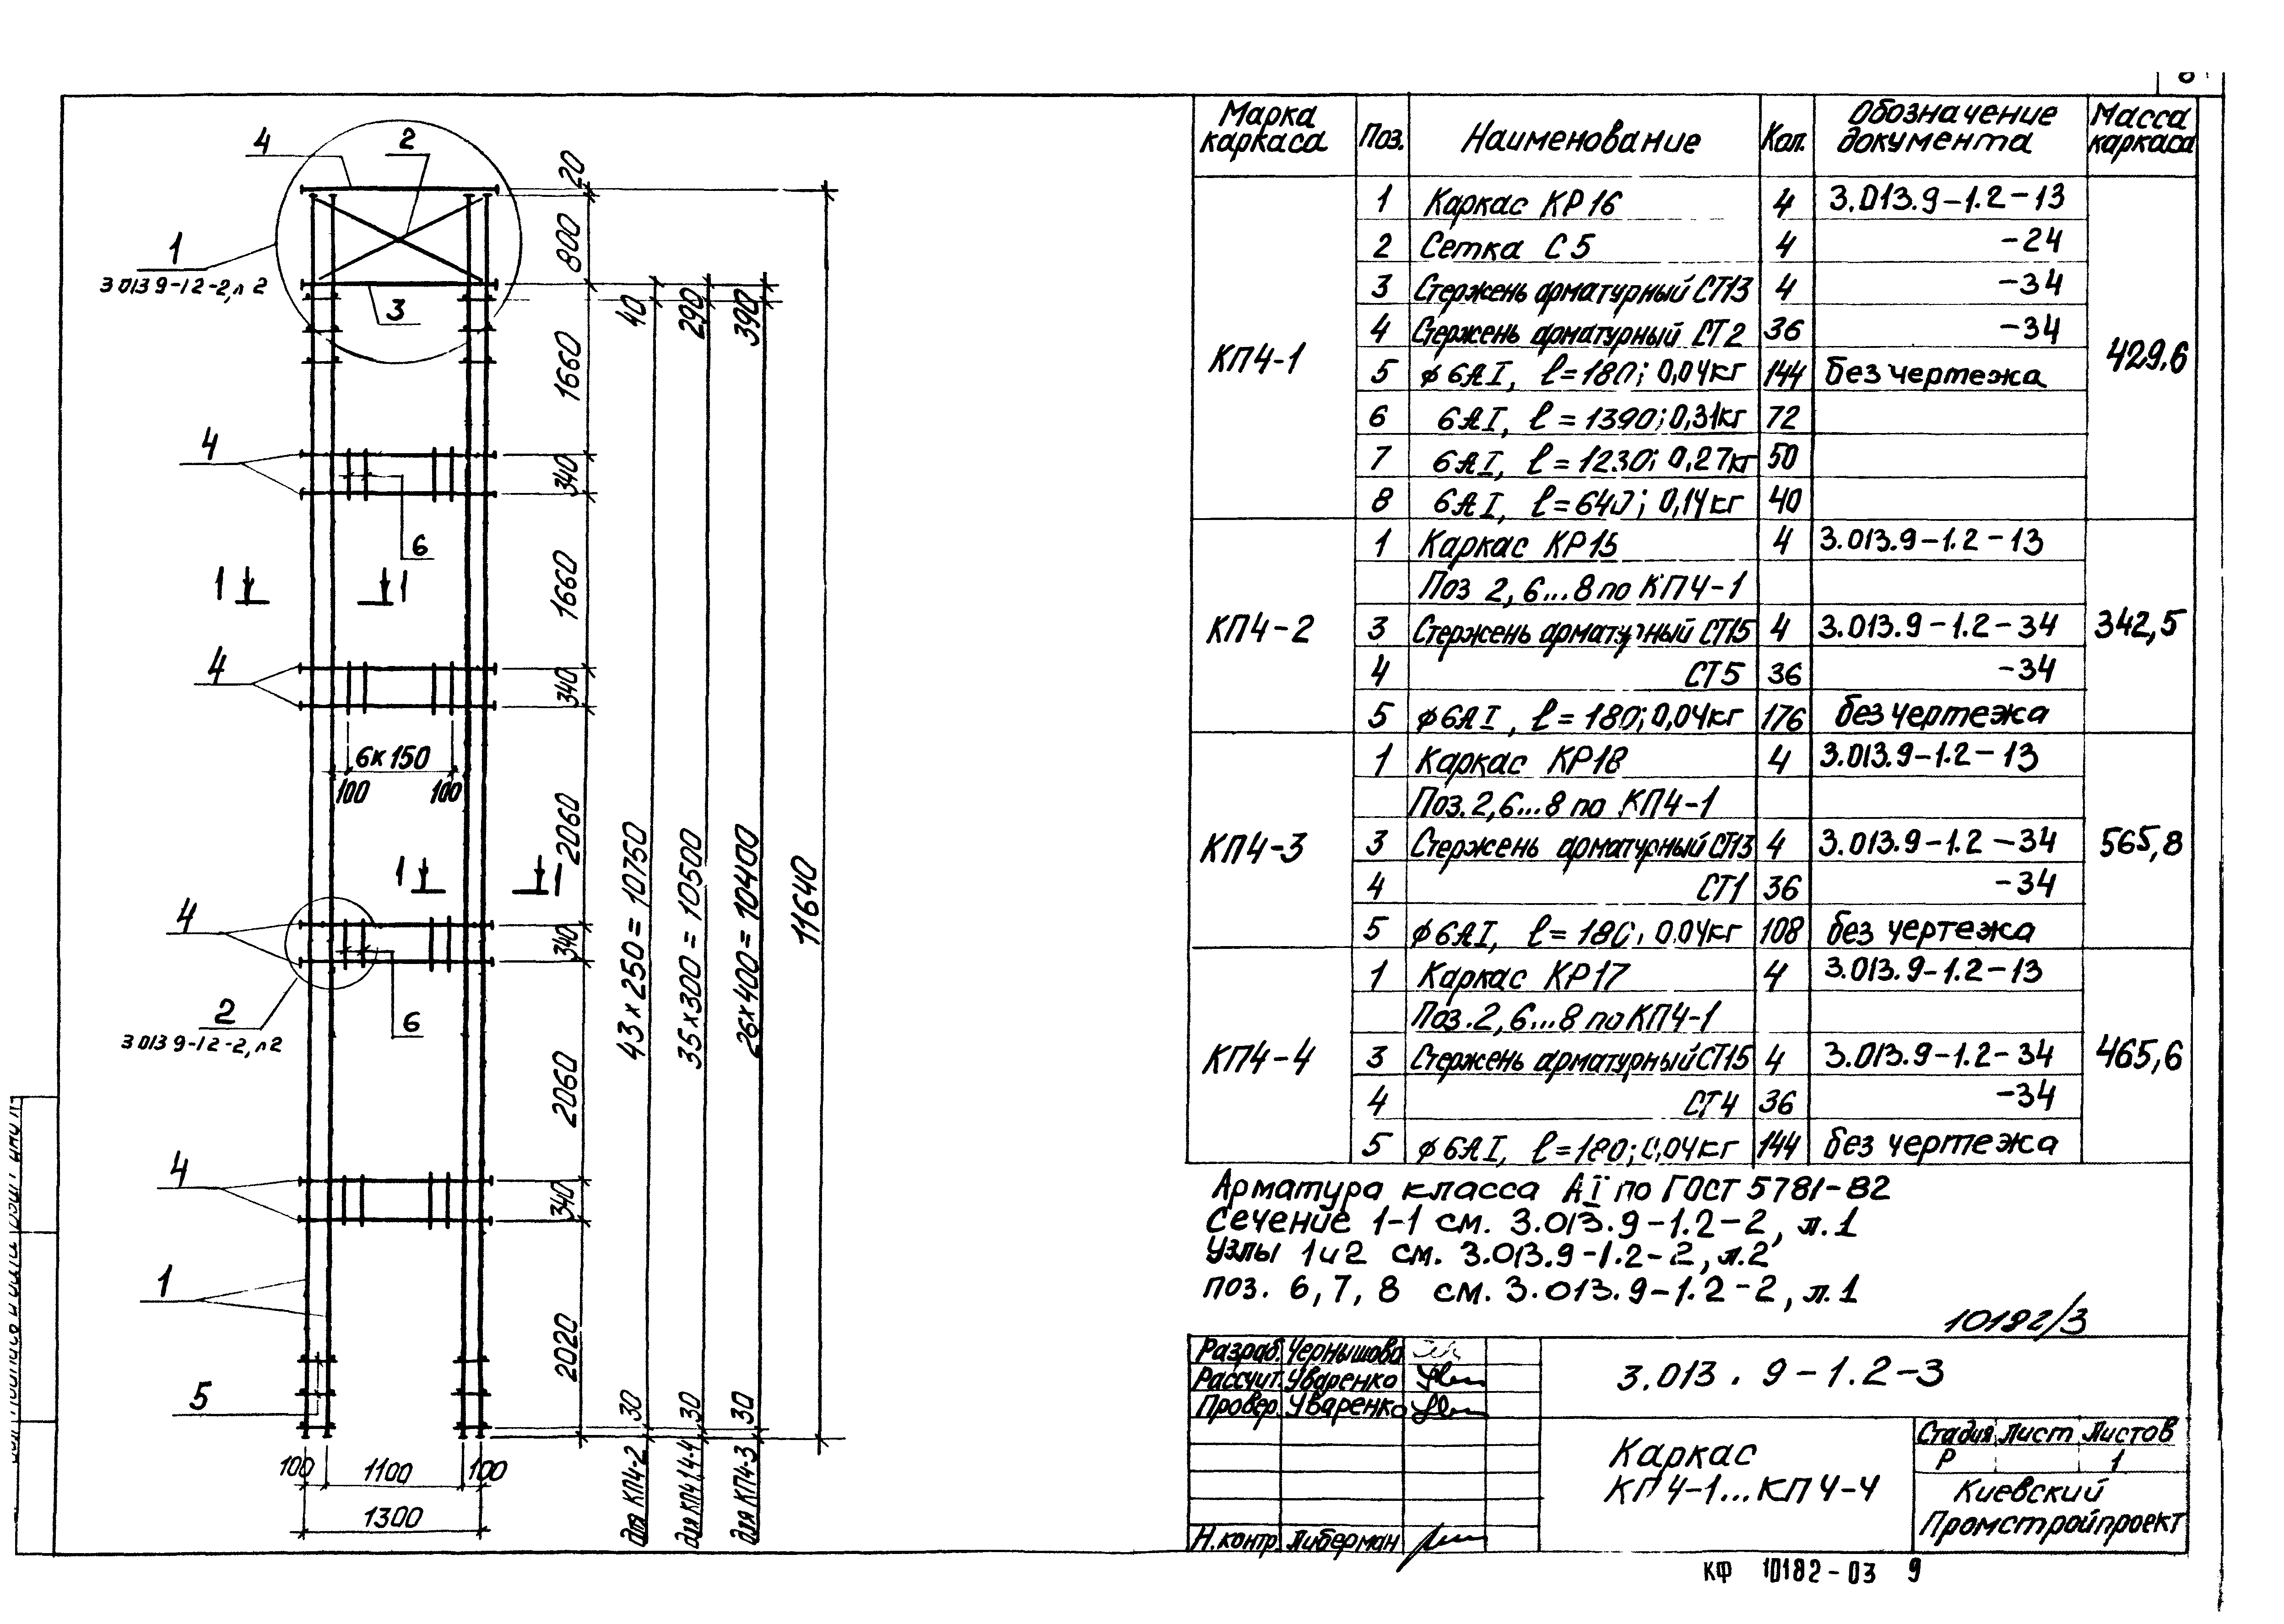 4
2
20
800
1
3 013 9-1 2-2, л 2
3
40
290
390
1660
4
340
6
1 1
1660
4
340
6х150
100 100
2060
1 1
4
340
2
3 013 9-1 2-2, л 2
6
43 х 250 = 10750
35х300 = 10500
26х400 = 10400
11640
2060
4
340
1
2020
5
30
30
30
100 1100 100
1300
для КП4-2
для КП4 1,4-4
для КП4-3
Марка каркаса Поз. Наименование Кол. Обозначение документа Масса каркаса
КП4-1 429.6
1 Каркас КР16 4 3.013.9-1.2-13
2 Сетка С5 4 -24
3 Стержень арматурный СТ13 4 -34
4 Стержень арматурный СТ2 36 -34
5 ϕ6АI, ℓ=180; 0,04кг 144 без чертежа
6 6АI, ℓ=1390; 0,31кг 72
7 6АI, ℓ=1230; 0,27кг 50
8 6АI, ℓ=640; 0,14кг 40
КП4-2 342,5
1 Каркас КР15 4 3.013.9-1.2-13
Поз 2,6...8 по КП4-1
3 Стержень арматурный СТ15 4 3.013.9-1.2-34
4 СТ5 36 -34
5 ϕ6АI, ℓ=180; 0,04кг 176 без чертежа
КП4-3 565,8
1 Каркас КР18 4 3.013.9-1.2-13
Поз.2,6...8 по КП4-1
3 Стержень арматурный СТ13 4 3.013.9-1.2-34
4 СТ1 36 -34
5 ϕ6АI, ℓ=180, 0,04кг 108 без чертежа
КП4-4 465,6
1 Каркас КР17 4 3.013.9-1.2-13
Поз.2,6...8 по КП4-1
3 Стержень арматурный СТ15 4 3.013.9-1.2-34
4 СТ4 36 -34
5 ϕ6АI, ℓ=180; 0,04кг 144 без чертежа
Арматура класса АI по ГОСТ 5781-82
Сечение 1-1 см. 3.013.9-1.2-2, л.1
Узлы 1и2 см. 3.013.9-1.2-2, л.2
поз. 6,7,8 см. 3.013.9-1.2-2, л.1
10182/3
Разраб. Чернышова
Рассчит. Уваренко
Провер. Уваренко
Н.контр. Либерман
3.013.9-1.2-3
Каркас
КП4-1...КП4-4
Стадия Лист Листов
Р 1
Киевский
Промстройпроект
КФ 10182-03 9